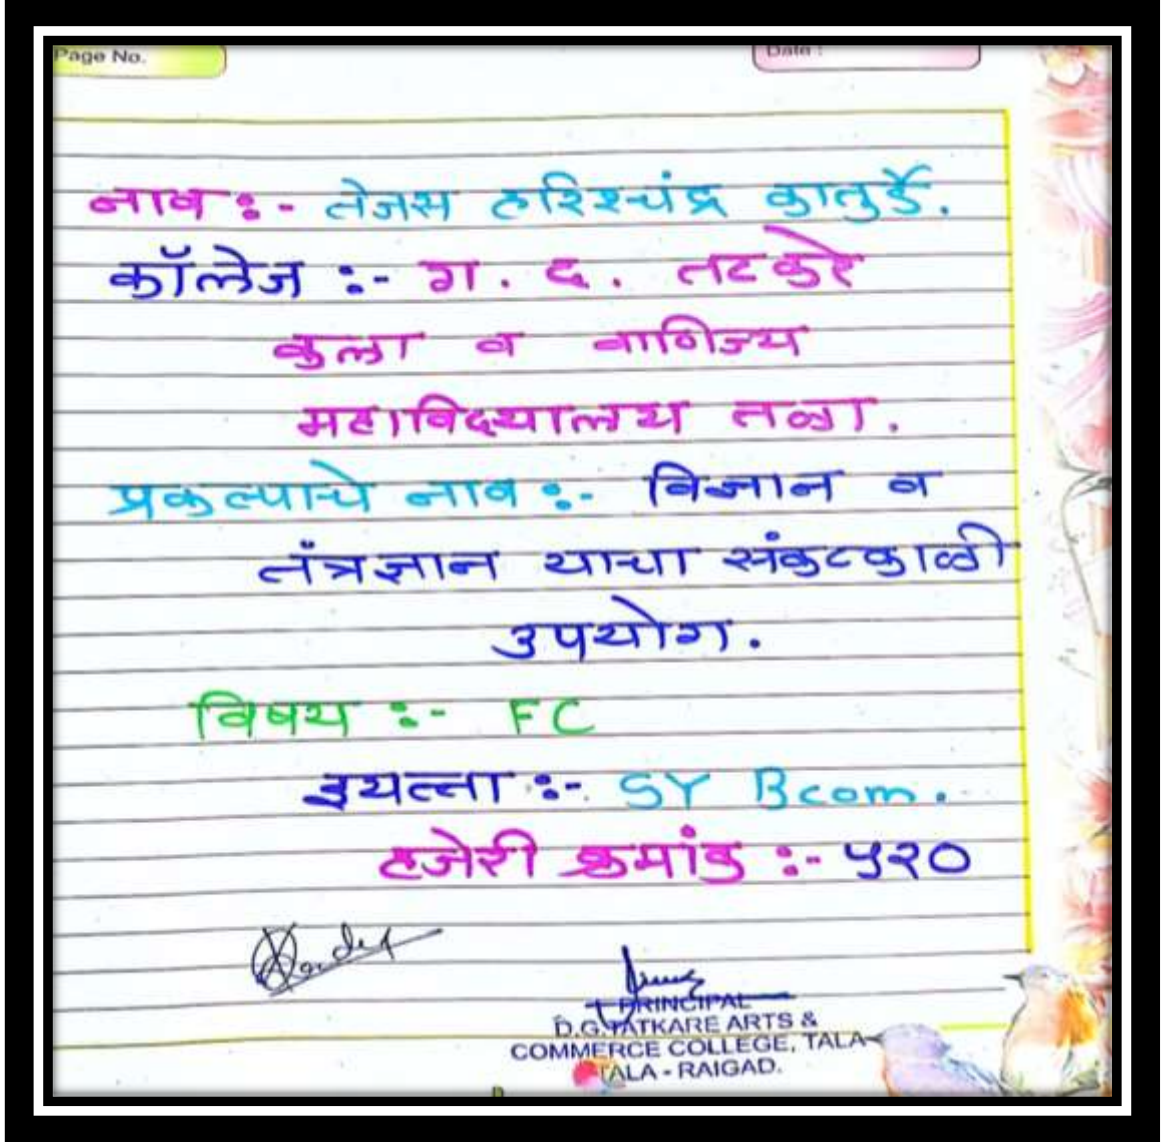 Page No.
Date :
नाव :- तेजस हरिश्चंद्र कातुर्डे.
कॉलेज :- ग. द. तटकरे
कला व वाणिज्य
महाविद्यालय तळा.
प्रकल्पाचे नाव :- विज्ञान व
तंत्रज्ञान याचा संकटकाळी
उपयोग.
विषय :- FC
इयत्ता :- SY Bcom.
हजेरी क्रमांक :- ५२०
PRINCIPAL
D.G.TATKARE ARTS &
COMMERCE COLLEGE, TALA
TALA - RAIGAD.